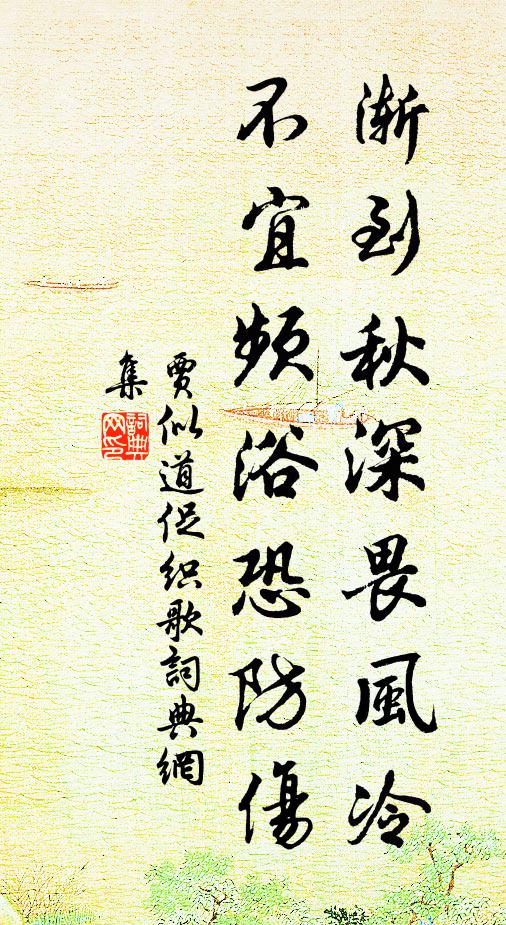 漸到秋深畏風冷
不宜頻浴恐防傷
賈似道促织歌詞典網
集
詞典
网印